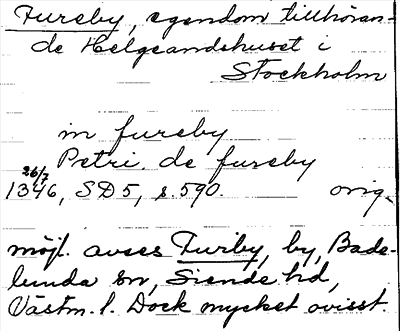 Fureby, egendom tillhöran-
de Helgeandshuset i
Stockholm
in fureby
Petri de fureby
26/7
1346, SD5, s. 590. orig.
möjl. avses Furby, by, Bade-
lunda sn, Siende hd,
Västm. l. Dock mycket ovisst.